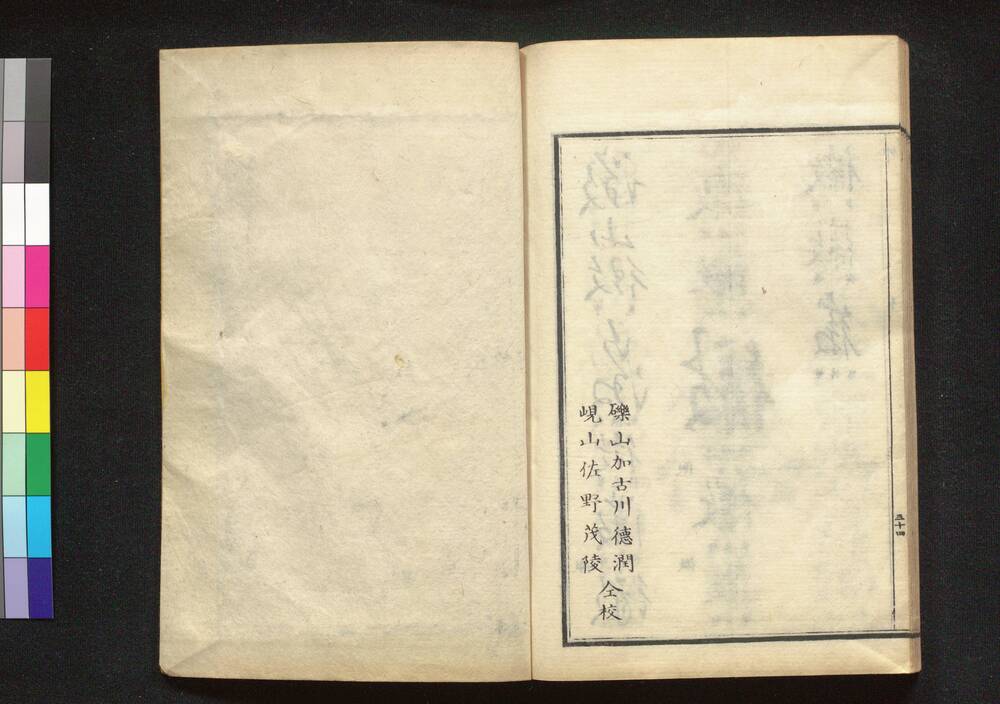 礫山加古川德潤
峴山佐野茂陵
仝校
五十四